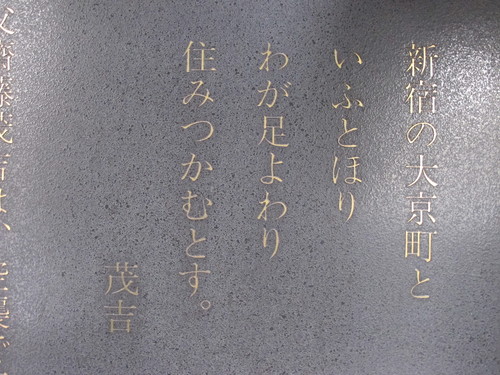 新宿の大京町と
いふとほり
わが足よわり
住みつかむとす。
茂吉
斎藤茂吉は、空襲で